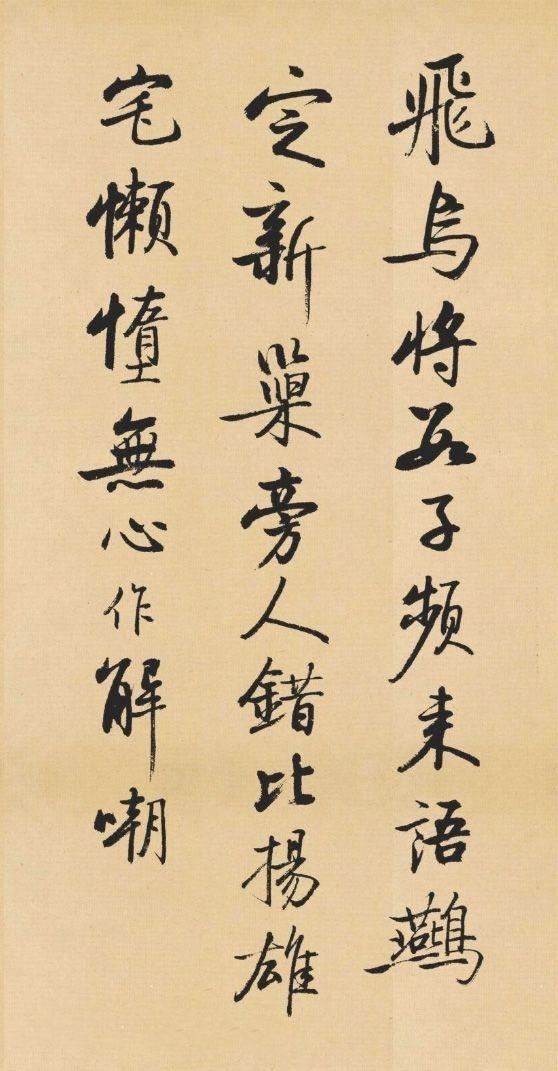 飛烏將數子頻来語鷰
定新巢旁人錯比揚雄
宅懶惰無心作解嘲